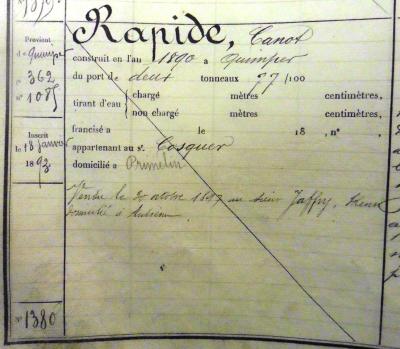 Rapide, Canot
Provient
de Quimper
fo 362
no 1085
construit en l'an 1890 à Quimper
du port de deux tonneaux 27/100
tirant d'eau { chargé mètres centimètres,
non chargé mètres centimètres,
francisé à le 18 , no .
Inscrit
le 18 janvier
1893
appartenant au sr. Cosquer
domicilié à Primelin
Vendu le 30 octobre 1897 au sieur Jaffry,
domicilié à Audierne
No 1380